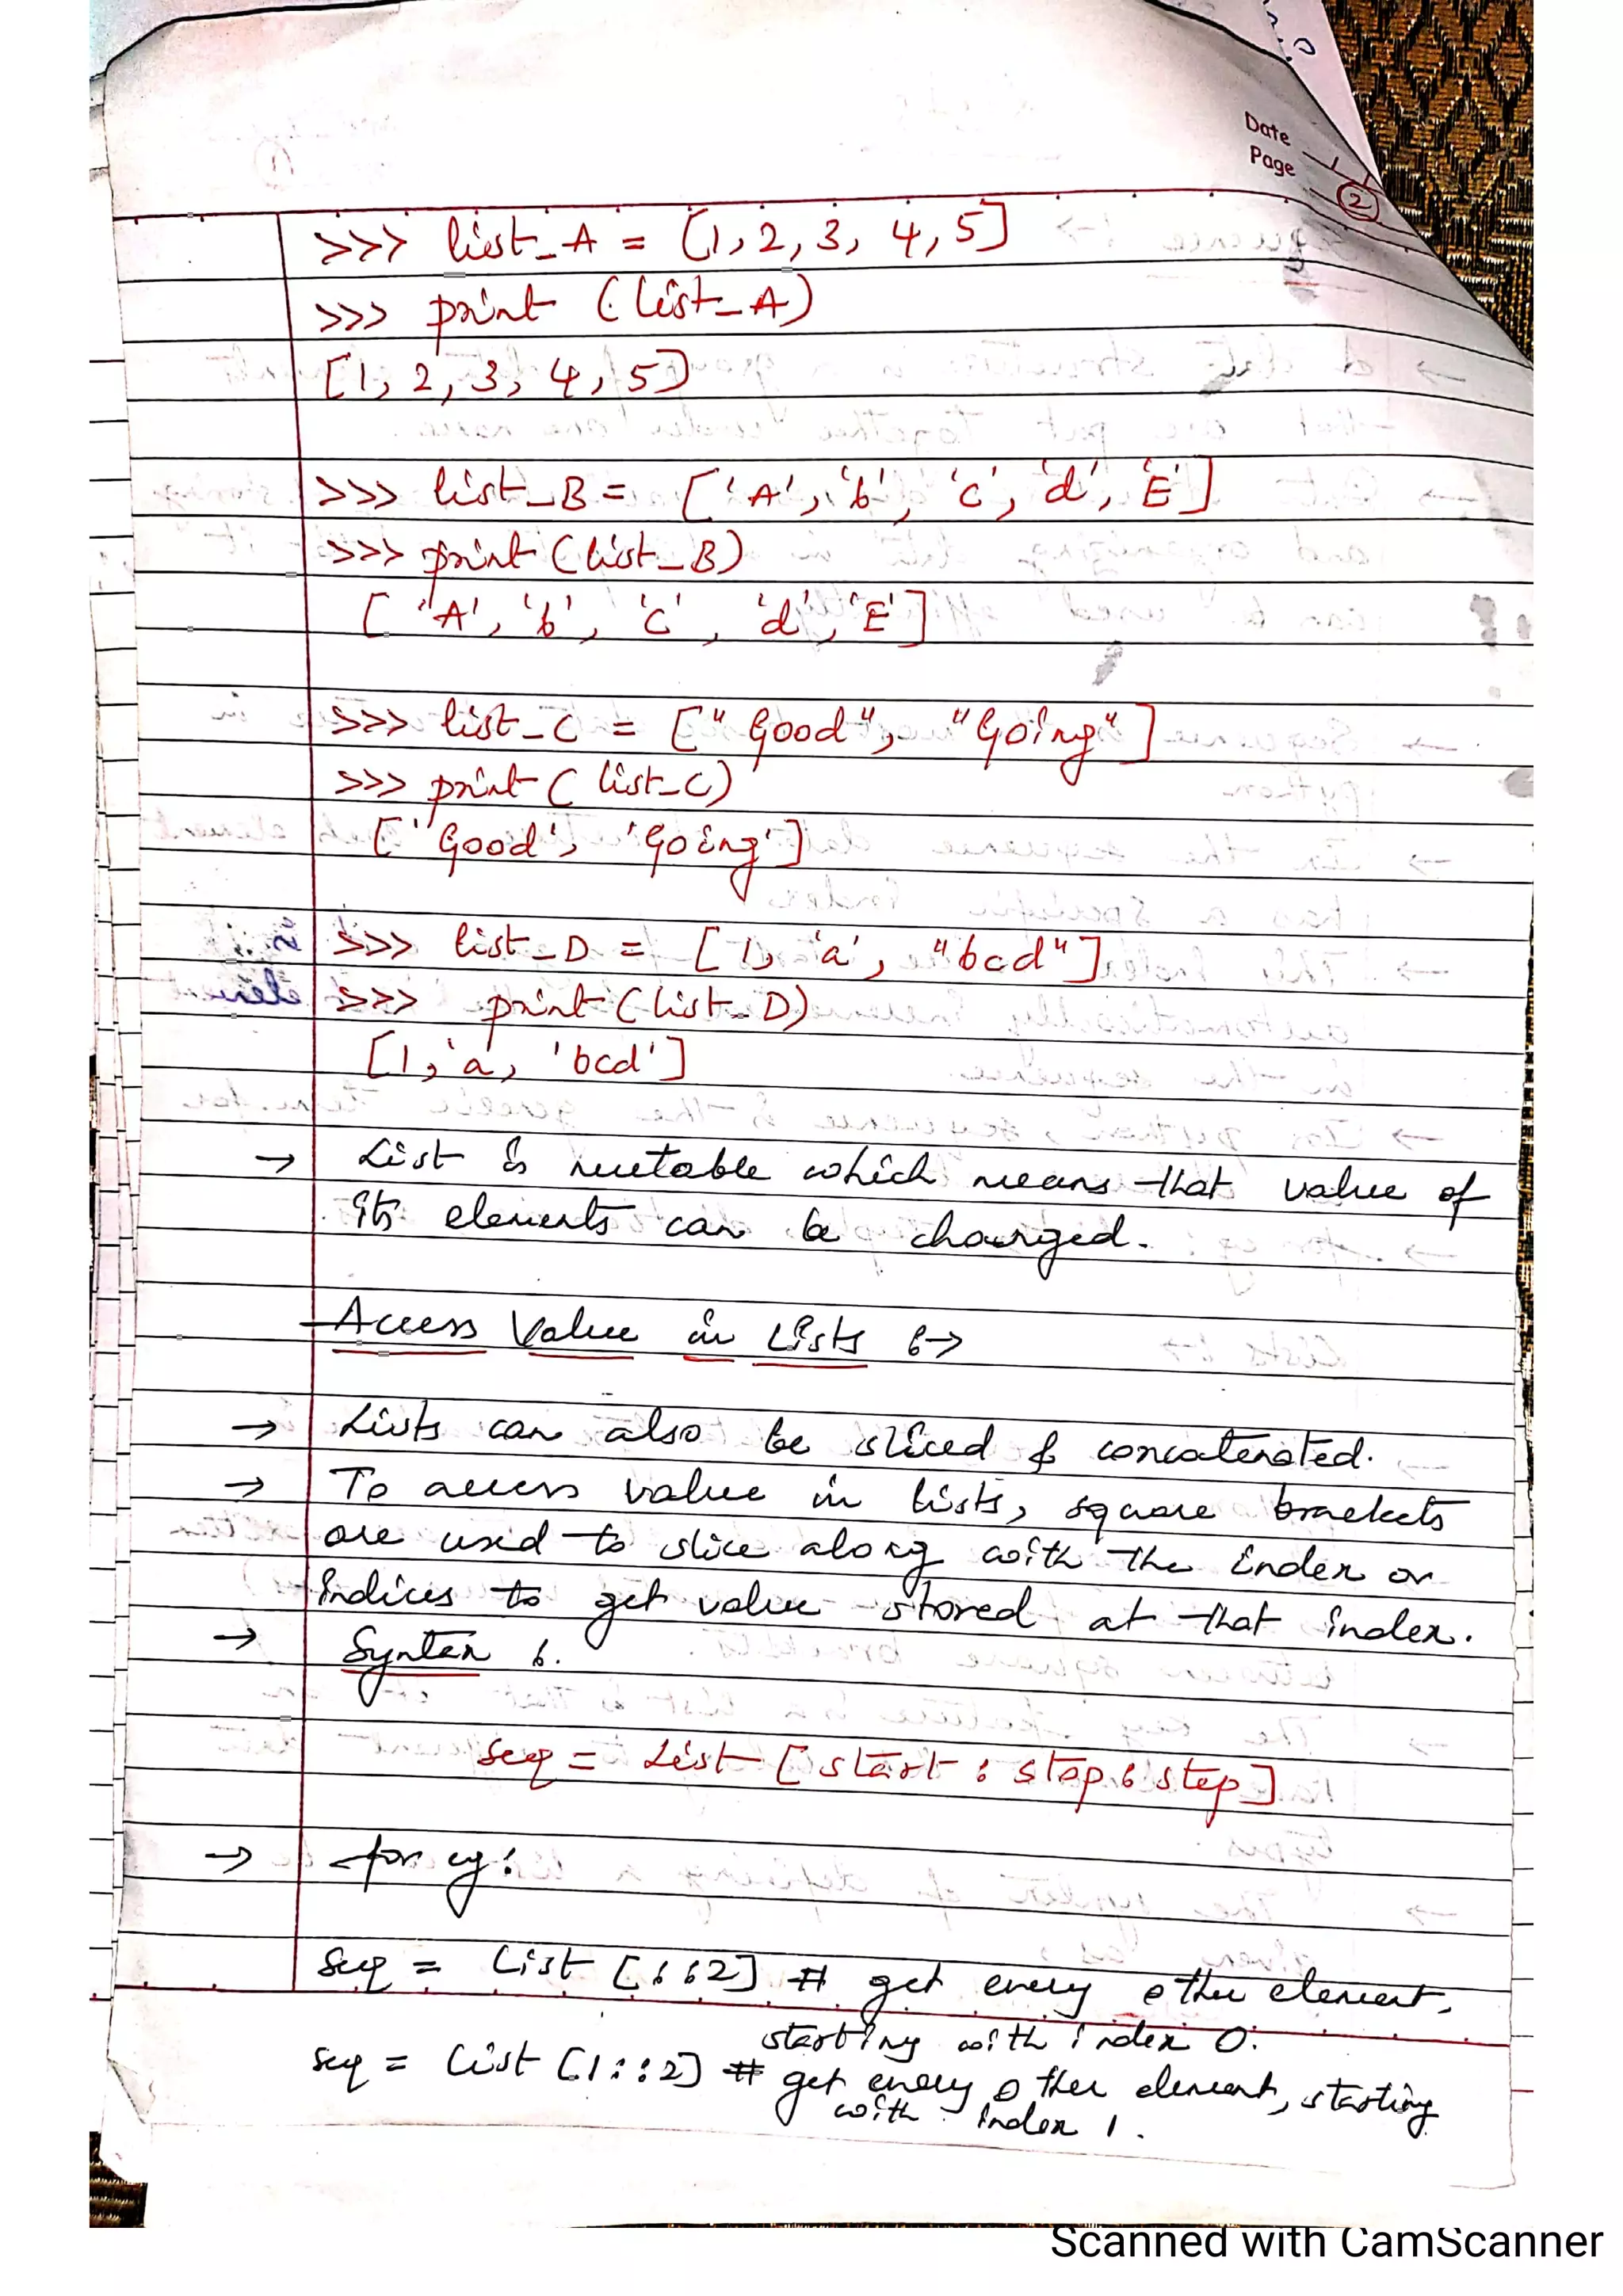 Date
Page
2
>>> list_A = [1, 2, 3, 4, 5]
>>> print (list_A)
[1, 2, 3, 4, 5]
>>> list_B = ['A', 'b', 'c', 'd', 'E']
>>> print (list_B)
['A', 'b', 'c', 'd', 'E']
>>> list_C = ["Good", "Going"]
>>> print (list_C)
['Good', 'Going']
>>> list_D = [1, 'a', "bcd"]
>>> print (list_D)
[1, 'a', 'bcd']
→ List is mutable which means that value of
its elements can be changed.
Access Value in Lists :→
→ Lists can also be sliced & concatenated.
→ To access value in lists, square brackets
are used to slice along with the index or
indices to get value stored at that index.
→ Syntax :
seq = List [start : stop : step]
→ for eg :
seq = List [: : 2] # get every other element,
starting with index 0.
seq = List [1 : : 2] # get every other element, starting
with index 1.
Scanned with CamScanner